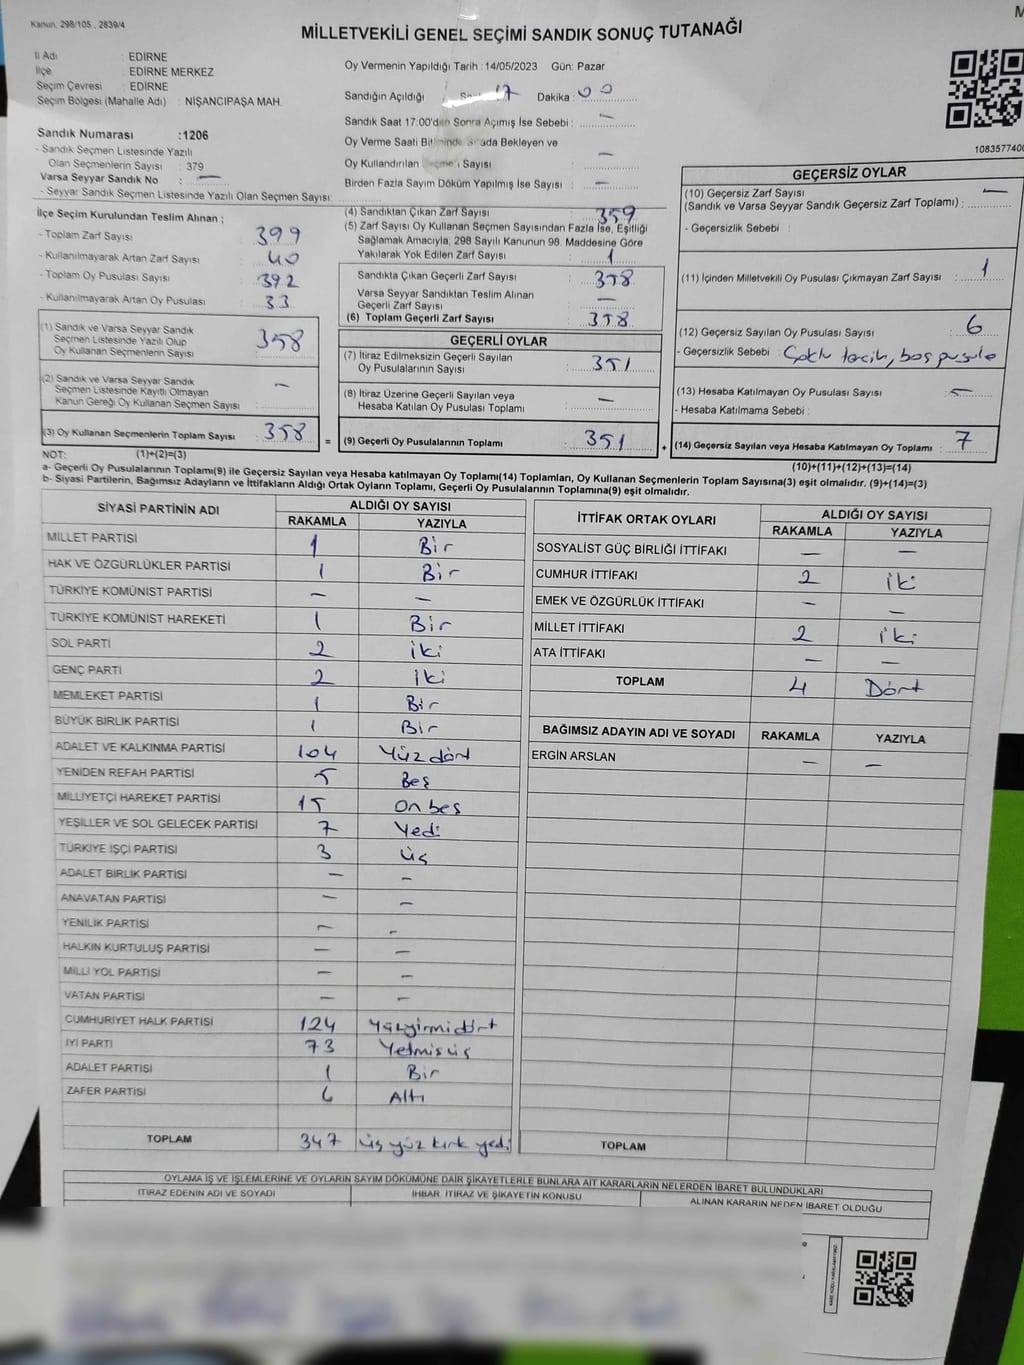 Kanun, 298/105 , 2839/4
MİLLETVEKİLİ GENEL SEÇİMİ SANDIK SONUÇ TUTANAĞI
İl Adı : EDİRNE
İlçe : EDİRNE MERKEZ
Seçim Çevresi : EDİRNE
Seçim Bölgesi (Mahalle Adı) : NİŞANCIPAŞA MAH.
Sandık Numarası :1206
- Sandık Seçmen Listesinde Yazılı
Olan Seçmenlerin Sayısı : 379
Varsa Seyyar Sandık No : —
- Seyyar Sandık Seçmen Listesinde Yazılı Olan Seçmen Sayısı:
Oy Vermenin Yapıldığı Tarih :14/05/2023 Gün: Pazar
Sandığın Açıldığı 17 Dakika : 00
Sandık Saat 17:00'den Sonra Açımış İse Sebebi : —
Oy Verme Saati Bitiminde Sırada Bekleyen ve
Oy Kullandırılan Seçmen Sayısı : —
Birden Fazla Sayım Döküm Yapılmış İse Sayısı : —
1083577400
İlçe Seçim Kurulundan Teslim Alınan ;
- Toplam Zarf Sayısı : 399
- Kullanılmayarak Artan Zarf Sayısı : 40
- Toplam Oy Pusulası Sayısı : 392
- Kullanılmayarak Artan Oy Pusulası : 33
(1) Sandık ve Varsa Seyyar Sandık
Seçmen Listesinde Yazılı Olup
Oy Kullanan Seçmenlerin Sayısı : 358
(2) Sandık ve Varsa Seyyar Sandık
Seçmen Listesinde Kayıtlı Olmayan
Kanun Gereği Oy Kullanan Seçmen Sayısı : —
(3) Oy Kullanan Seçmenlerin Toplam Sayısı : 358 =
(4) Sandıktan Çıkan Zarf Sayısı : 359
(5) Zarf Sayısı Oy Kullanan Seçmen Sayısından Fazla İse, Eşitliği
Sağlamak Amacıyla, 298 Sayılı Kanunun 98. Maddesine Göre
Yakılarak Yok Edilen Zarf Sayısı : 1
Sandıkta Çıkan Geçerli Zarf Sayısı : 358
Varsa Seyyar Sandıktan Teslim Alınan
Geçerli Zarf Sayısı : —
(6) Toplam Geçerli Zarf Sayısı : 358
GEÇERLİ OYLAR
(7) İtiraz Edilmeksizin Geçerli Sayılan
Oy Pusulalarının Sayısı : 351
(8) İtiraz Üzerine Geçerli Sayılan veya
Hesaba Katılan Oy Pusulası Toplamı : —
(9) Geçerli Oy Pusulalarının Toplamı : 351 +
GEÇERSİZ OYLAR
(10) Geçersiz Zarf Sayısı —
(Sandık ve Varsa Seyyar Sandık Geçersiz Zarf Toplamı) :
- Geçersizlik Sebebi :
(11) İçinden Milletvekili Oy Pusulası Çıkmayan Zarf Sayısı : 1
(12) Geçersiz Sayılan Oy Pusulası Sayısı : 6
- Geçersizlik Sebebi : Çoklu tercih, boş pusula
(13) Hesaba Katılmayan Oy Pusulası Sayısı : —
- Hesaba Katılmama Sebebi :
(14) Geçersiz Sayılan veya Hesaba Katılmayan Oy Toplamı : 7
NOT: (1)+(2)=(3) (10)+(11)+(12)+(13)=(14)
a- Geçerli Oy Pusulalarının Toplamı(9) ile Geçersiz Sayılan veya Hesaba katılmayan Oy Toplamı(14) Toplamları, Oy Kullanan Seçmenlerin Toplam Sayısına(3) eşit olmalıdır. (9)+(14)=(3)
b- Siyasi Partilerin, Bağımsız Adayların ve İttifakların Aldığı Ortak Oyların Toplamı, Geçerli Oy Pusulalarının Toplamına(9) eşit olmalıdır.
SİYASİ PARTİNİN ADI ALDIĞI OY SAYISI
RAKAMLA YAZIYLA
MİLLET PARTİSİ 1 Bir
HAK VE ÖZGÜRLÜKLER PARTİSİ 1 Bir
TÜRKİYE KOMÜNİST PARTİSİ — —
TÜRKİYE KOMÜNİST HAREKETİ 1 Bir
SOL PARTİ 2 iki
GENÇ PARTİ 2 iki
MEMLEKET PARTİSİ 1 Bir
BÜYÜK BİRLİK PARTİSİ 1 Bir
ADALET VE KALKINMA PARTİSİ 104 Yüz dört
YENİDEN REFAH PARTİSİ 5 Beş
MİLLİYETÇİ HAREKET PARTİSİ 15 On beş
YEŞİLLER VE SOL GELECEK PARTİSİ 7 Yedi
TÜRKİYE İŞÇİ PARTİSİ 3 üç
ADALET BİRLİK PARTİSİ — —
ANAVATAN PARTİSİ — —
YENİLİK PARTİSİ — —
HALKIN KURTULUŞ PARTİSİ — —
MİLLİ YOL PARTİSİ — —
VATAN PARTİSİ — —
CUMHURİYET HALK PARTİSİ 124 Yüzyirmidört
İYİ PARTİ 73 Yetmişüç
ADALET PARTİSİ 1 Bir
ZAFER PARTİSİ 6 Altı
TOPLAM 347 üç yüz kırk yedi
İTTİFAK ORTAK OYLARI ALDIĞI OY SAYISI
RAKAMLA YAZIYLA
SOSYALİST GÜÇ BİRLİĞİ İTTİFAKI — —
CUMHUR İTTİFAKI 2 iki
EMEK VE ÖZGÜRLÜK İTTİFAKI — —
MİLLET İTTİFAKI 2 iki
ATA İTTİFAKI — —
TOPLAM 4 Dört
BAĞIMSIZ ADAYIN ADI VE SOYADI RAKAMLA YAZIYLA
ERGİN ARSLAN — —
TOPLAM
OYLAMA İŞ VE İŞLEMLERİNE VE OYLARIN SAYIM DÖKÜMÜNE DAİR ŞİKAYETLERLE BUNLARA AİT KARARLARIN NELERDEN İBARET BULUNDUKLARI
İTİRAZ EDENİN ADI VE SOYADI İHBAR, İTİRAZ VE ŞİKAYETİN KONUSU ALINAN KARARIN NEDEN İBARET OLDUĞU